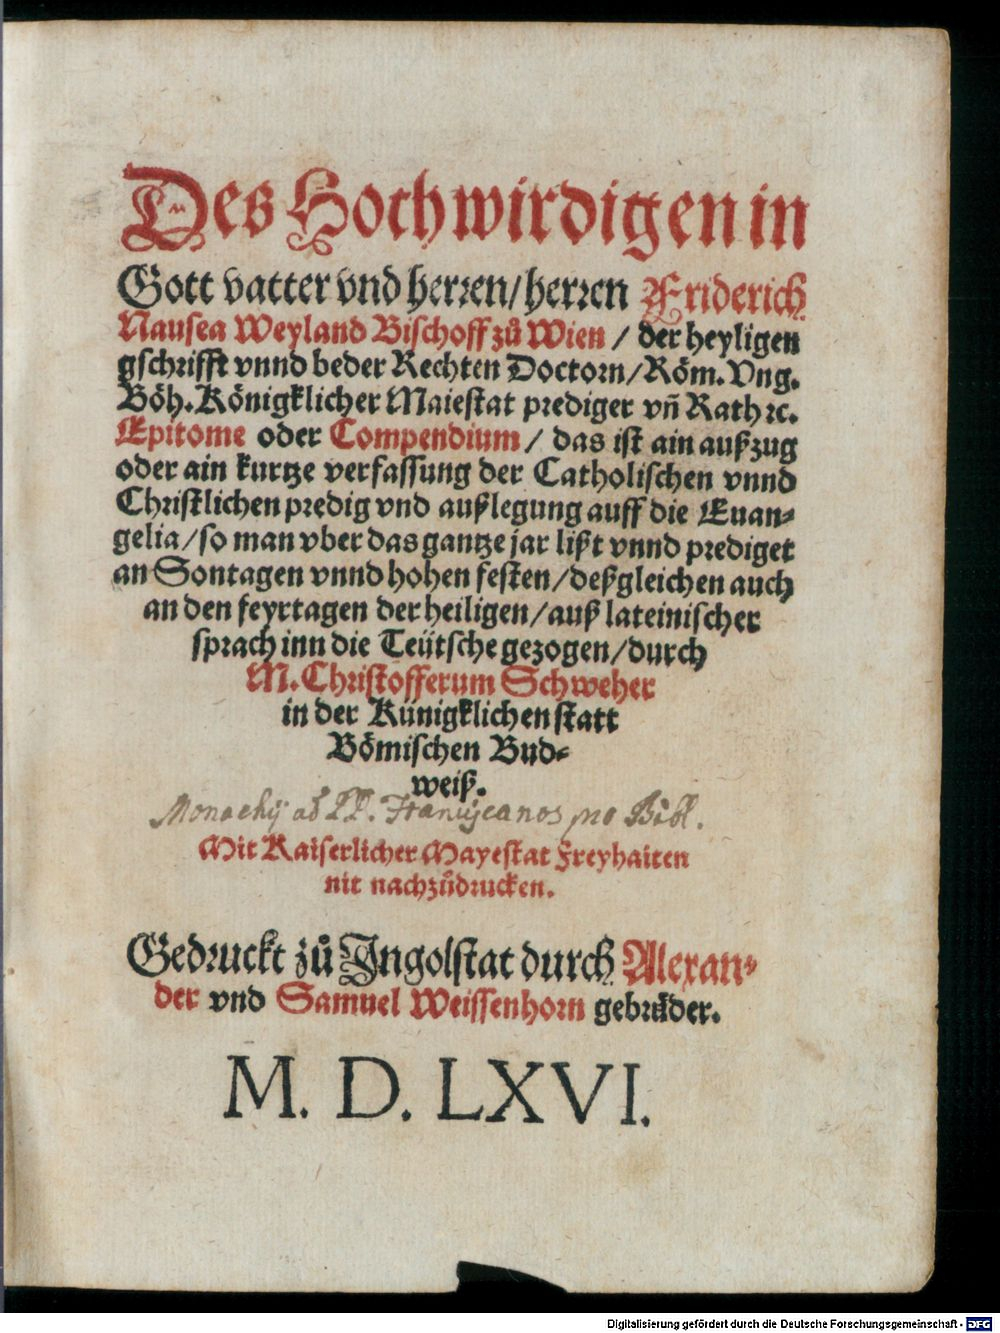 Des Hochwirdigen in
Gott vatter vnd herren/herren Friderich
Nausea Weyland Bischoff zů Wien / der heyligen
gschrifft vnnd beder Rechten Doctorn/Röm. Vng.
Böh. Königklicher Maiestat prediger vñ Rath ꝛc.
Epitome oder Compendium / das ist ain außzug
oder ain kurtze verfassung der Catholischen vnnd
Christlichen predig vnd außlegung auff die Euan-
gelia/so man vber das gantze jar lißt vnnd prediget
an Sontagen vnnd hohen festen/deßgleichen auch
an den feyrtagen der heiligen/auß lateinischer
sprach inn die Teütsche gezogen/durch
M. Christofferum Schweher
in der Künigklichen statt
Bömischen Bud-
weiß.
Monachij ad PP. Franciscanos pro Bibl.
Mit Kaiserlicher Mayestat Freyhaiten
nit nachzůdrucken.
Gedruckt zů Ingolstat durch Alexan-
der vnd Samuel Weissenhorn gebrůder.
M. D. LXVI.
Digitalisierung gefördert durch die Deutsche Forschungsgemeinschaft - DFG